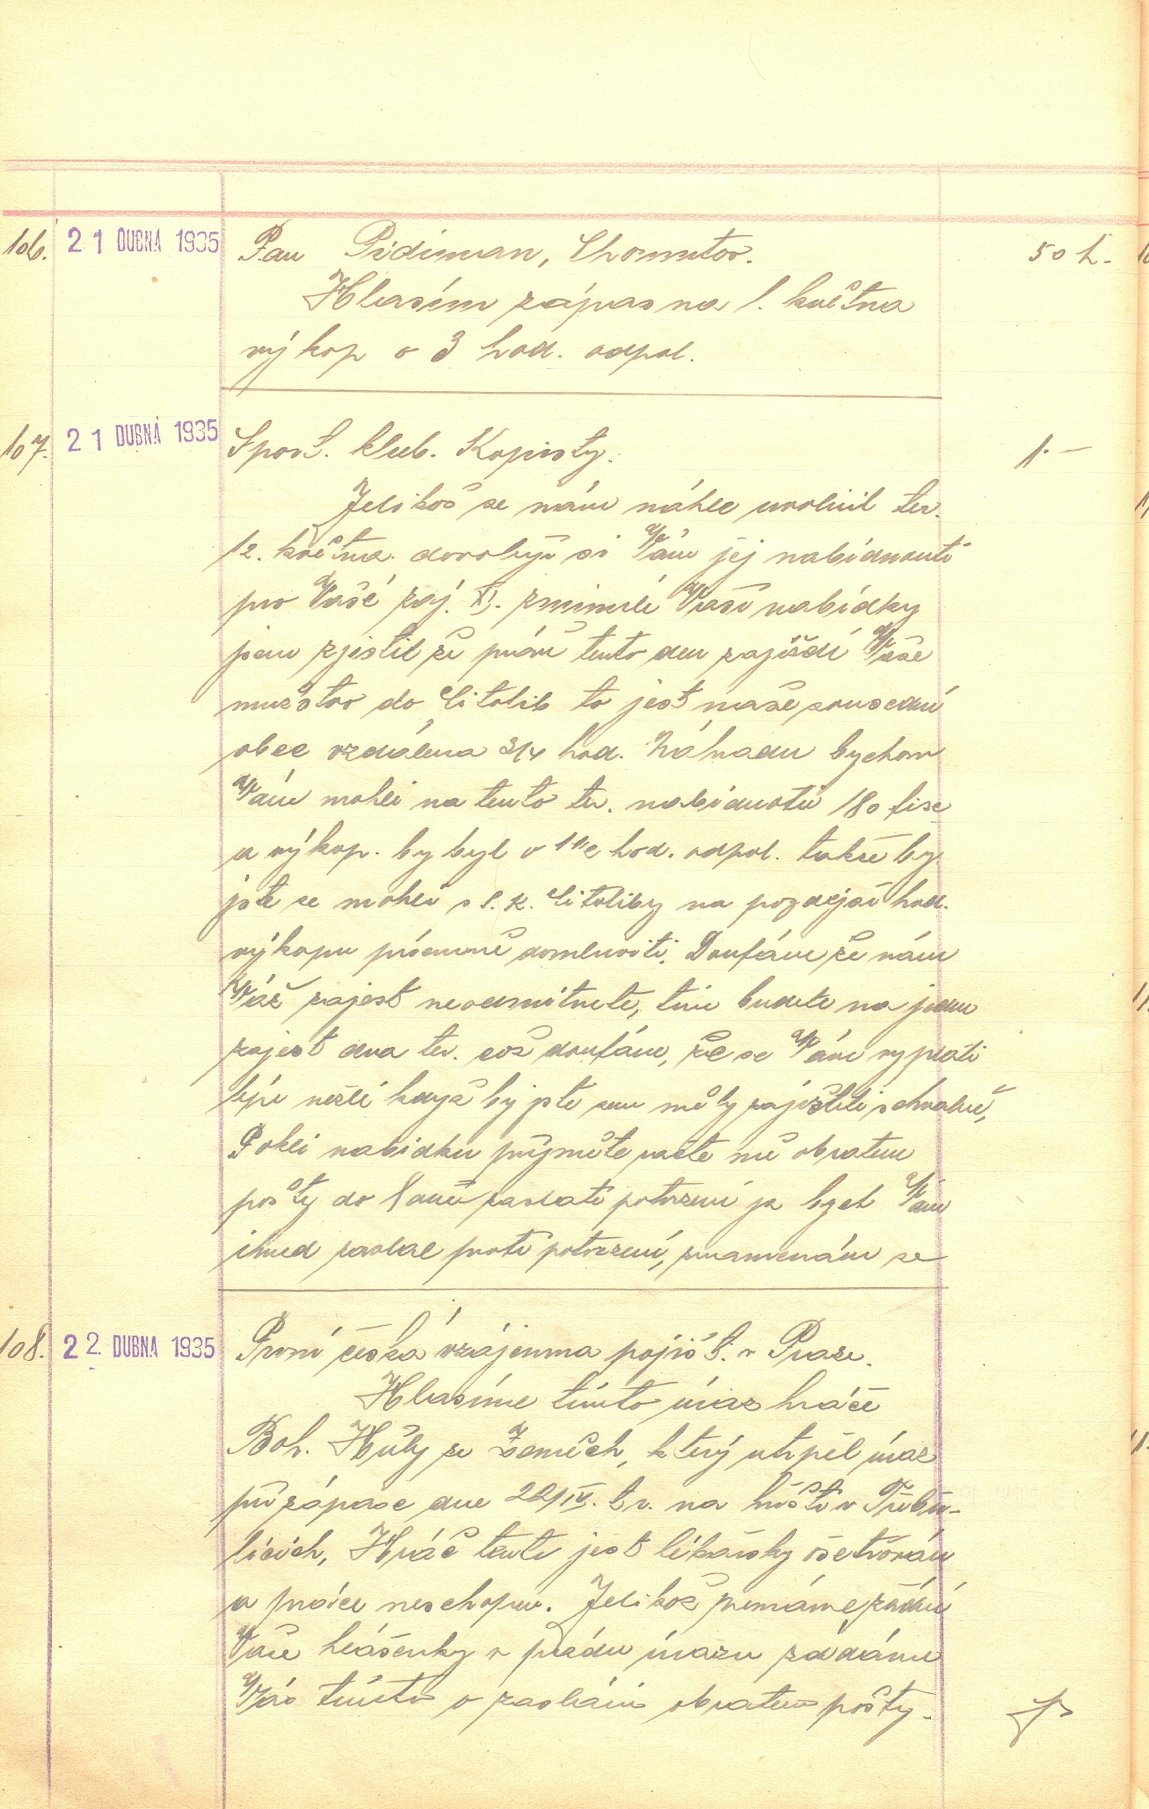 106. 21 DUBNA 1935 Pan Pridiman, Chomutov. 50 h.
Hlasím zápas na 1. května
výkop o 3 hod. odpol.
107. 21 DUBNA 1935 Sport. klub. Kopisty. 1.-
Jelikož se nám náhle uvolnil ter.
12. května. dovoluji si Vám jej nabídnouti
pro Vaší záj. XI. z minulé Vaší nabídky
jsem zjistil že právě tento den zajíždí Vaše
mužstvo do Citolib to jest naše sousední
obec vzdálena 3/4 hod. Náhradu bychom
Vám mohli na tento ter. nabídnouti 180
a výkop. by byl v hod. odpol. takže by
jste se mohli s S.K. Citoliby na pozdější hod.
výkopu písemně domluviti. Doufáme že nám
Váš zájezd neodmítnete, tím budete na jeden
zájezd dva ter. což doufáme, že se Vám vyplatí
lépe nežli když by jste sem měly zajížděti
Pokli nabídku přijmete račte mě obratem
pošty do Loun zaslati potvrzení ja bych Vám
ihned zaslal proti potvrzení, znamenám se
108. 22. DUBNA 1935 První česká vzájemna pojišť. v Praze.
Hlasíme tímto úraz hráče
Boh. Hůly ze Žeměch, který utrpěl úraz
při zápase dne 20/IV. t.r. na hřišti v Třibv-
licích, Hráč tento jest lékařsky ošetřován
a práce neschopen. Jelikož nemáme žádné
Vaše hlášenky v případu úrazu žádáme
Vás tímto o zaslání obratem pošty.